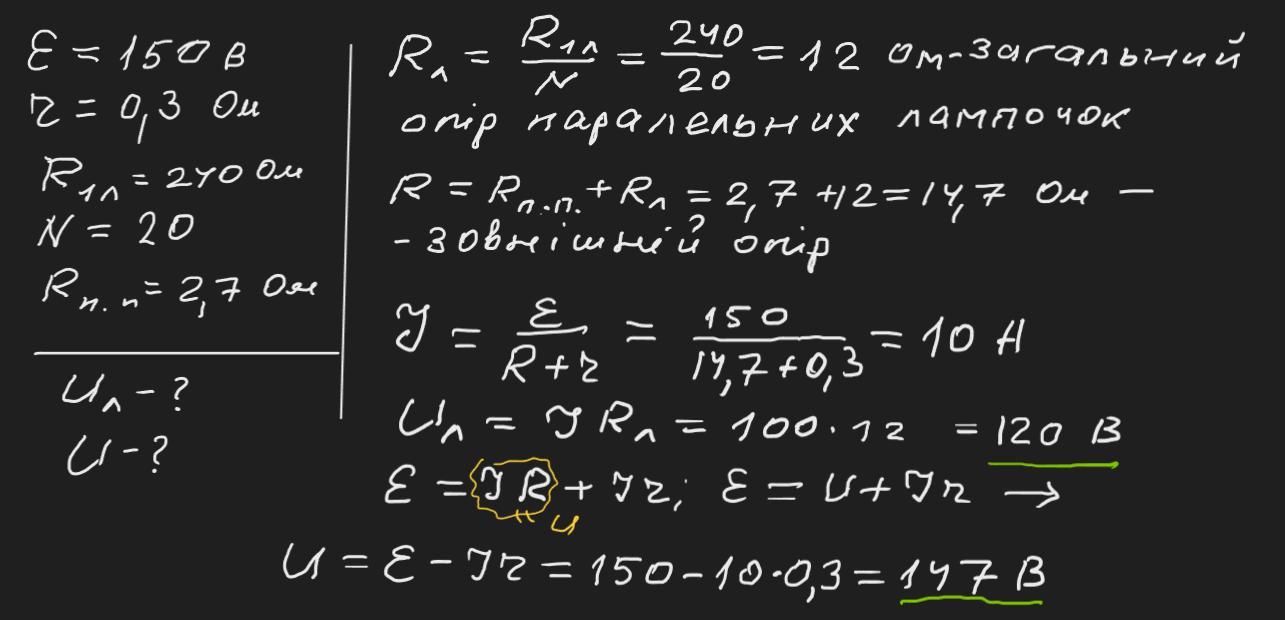 ε = 150 В
r = 0,3 Ом
R₁л = 240 Ом
N = 20
Rп.п = 2,7 Ом
Uл - ?
U - ?
Rл = R₁л/N = 240/20 = 12 Ом - загальний
опір паралельних лампочок
R = Rп.п. + Rл = 2,7 + 12 = 14,7 Ом —
- зовнішній опір
I = ε/(R + r) = 150/(14,7 + 0,3) = 10 А
Uл = I Rл = 100 · 12 = 120 В
ε = I R + I r; ε = U + I r →
" U
U = ε - I r = 150 - 10 · 0,3 = 147 В